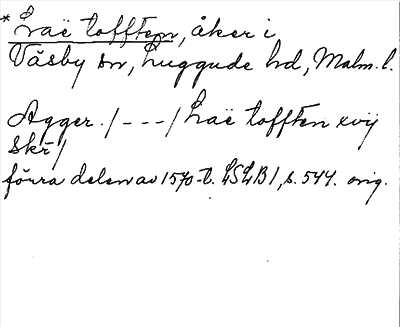 * Laë tofften, åker i
Väsby sn, Luggude hd, Malm. l.
Agger. /---/ Laë tofften xvij
skr /
förra delen av 1570-t. LSLB 1, s. 544. orig.